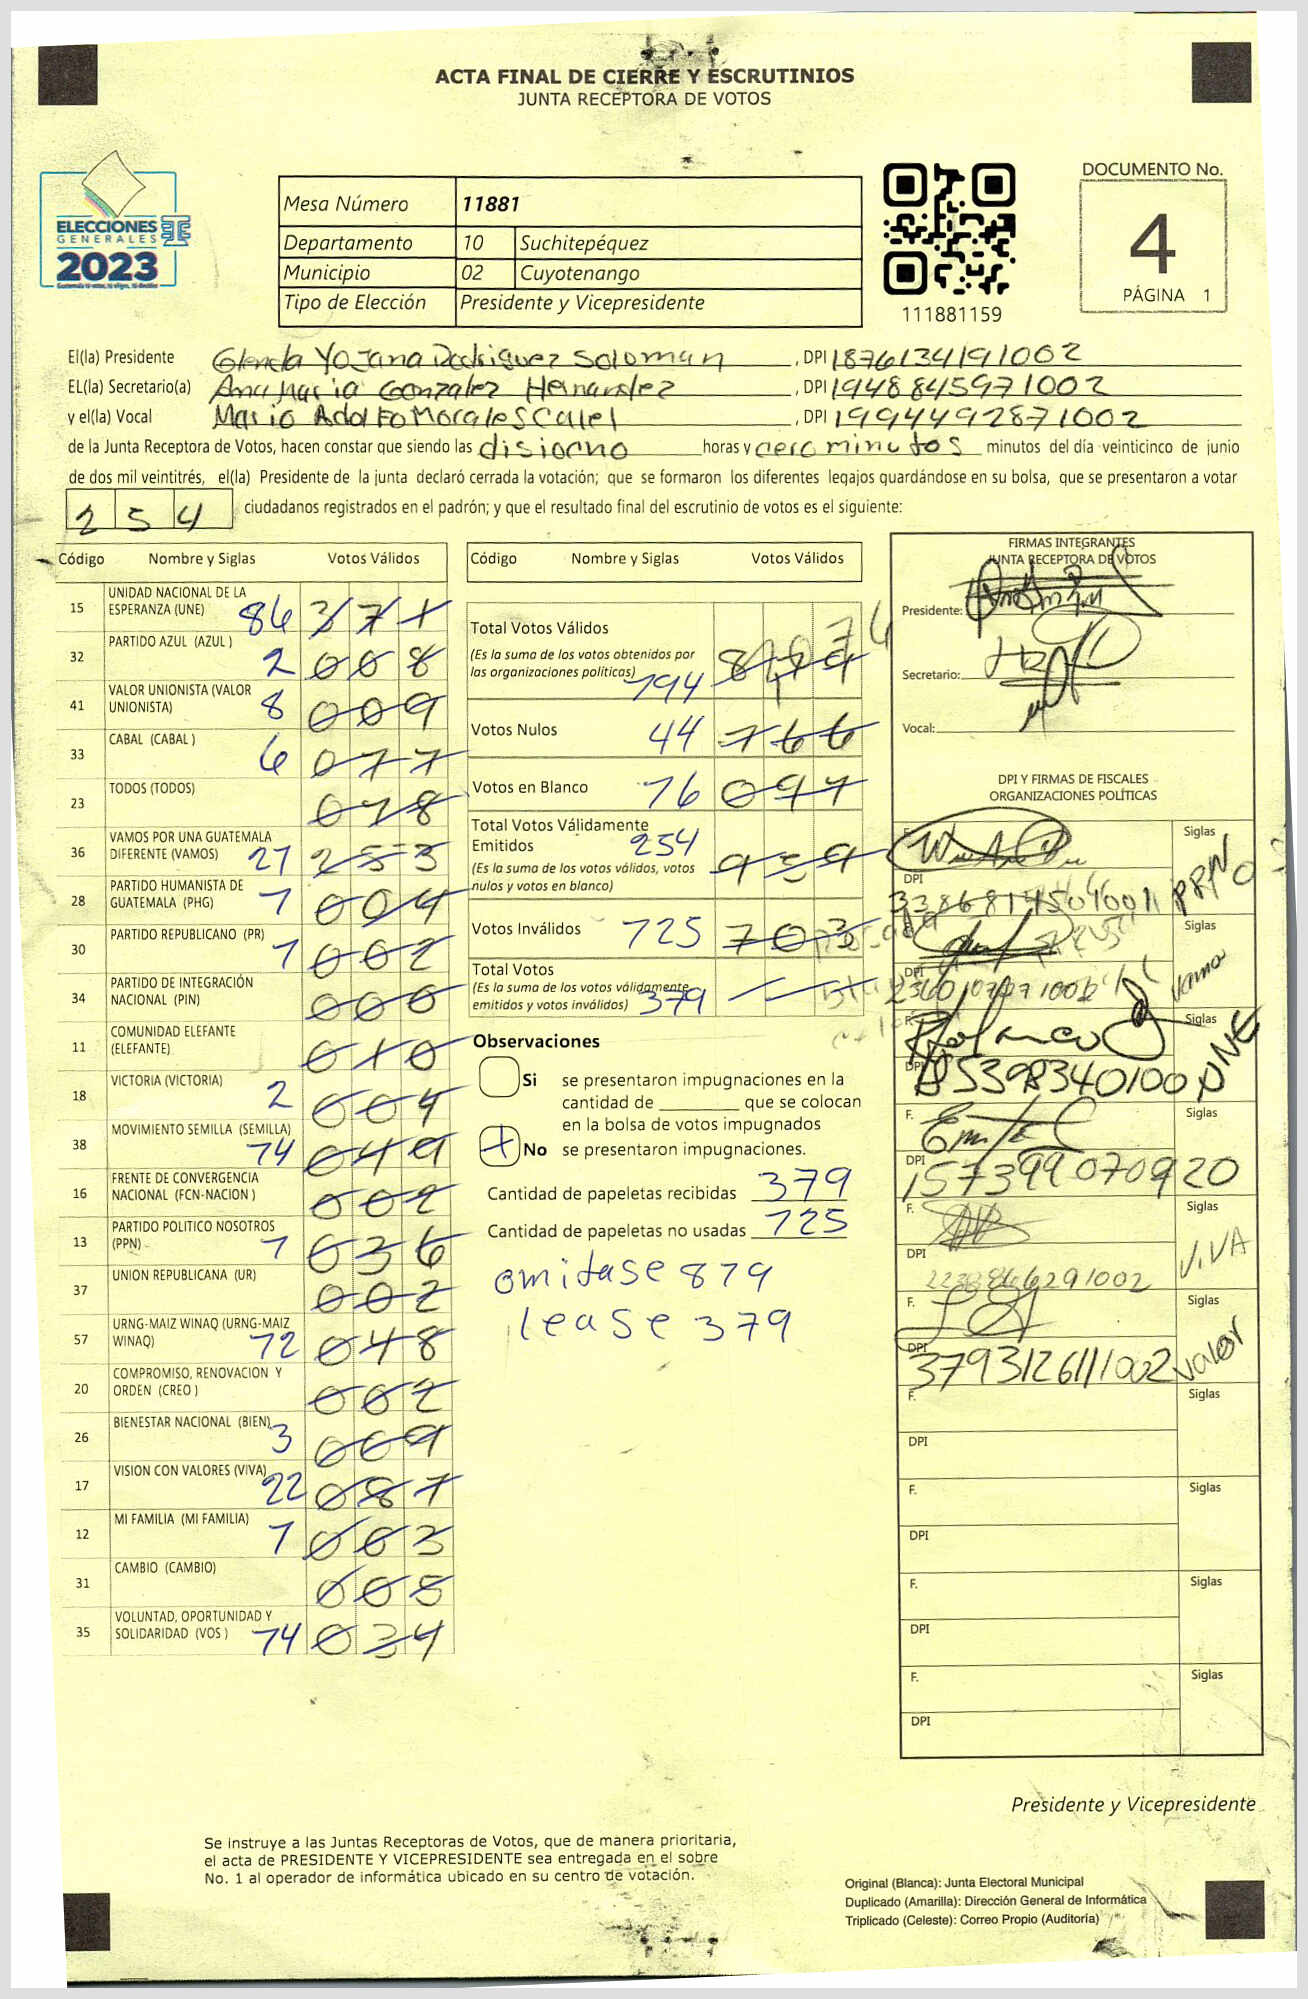 ACTA FINAL DE CIERRE Y ESCRUTINIOS
JUNTA RECEPTORA DE VOTOS
ELECCIONES
GENERALES
2023
Mesa Número 11881
Departamento 10 Suchitepéquez
Municipio 02 Cuyotenango
Tipo de Elección Presidente y Vicepresidente
111881159
DOCUMENTO No.
4
PÁGINA 1
El(la) Presidente Glenda Yojana Rodriguez Soloman , DPI 1876134191002
EL(la) Secretario(a) Ana Maria Gonzalez Hernandez , DPI 1948845971002
y el(la) Vocal Mario Adolfo Morales , DPI 1994492871002
de la Junta Receptora de Votos, hacen constar que siendo las disiorno horas y cero minutos minutos del día veinticinco de junio
de dos mil veintitrés, el(la) Presidente de la junta declaró cerrada la votación; que se formaron los diferentes legajos guardándose en su bolsa, que se presentaron a votar
254 ciudadanos registrados en el padrón; y que el resultado final del escrutinio de votos es el siguiente:
Código Nombre y Siglas Votos Válidos
15 UNIDAD NACIONAL DE LA ESPERANZA (UNE) 86 371
32 PARTIDO AZUL (AZUL ) 2 008
41 VALOR UNIONISTA (VALOR UNIONISTA) 8 009
33 CABAL (CABAL ) 6 077
23 TODOS (TODOS) 018
36 VAMOS POR UNA GUATEMALA DIFERENTE (VAMOS) 27 253
28 PARTIDO HUMANISTA DE GUATEMALA (PHG) 1 004
30 PARTIDO REPUBLICANO (PR) 1 002
34 PARTIDO DE INTEGRACIÓN NACIONAL (PIN) 000
11 COMUNIDAD ELEFANTE (ELEFANTE) 010
18 VICTORIA (VICTORIA) 2 004
38 MOVIMIENTO SEMILLA (SEMILLA) 14 049
16 FRENTE DE CONVERGENCIA NACIONAL (FCN-NACION ) 002
13 PARTIDO POLITICO NOSOTROS (PPN) 1 036
37 UNION REPUBLICANA (UR) 002
57 URNG-MAIZ WINAQ (URNG-MAIZ WINAQ) 12 048
20 COMPROMISO, RENOVACION Y ORDEN (CREO ) 002
26 BIENESTAR NACIONAL (BIEN) 3 009
17 VISION CON VALORES (VIVA) 22 087
12 MI FAMILIA (MI FAMILIA) 1 003
31 CAMBIO (CAMBIO) 005
35 VOLUNTAD, OPORTUNIDAD Y SOLIDARIDAD (VOS ) 14 034
Código Nombre y Siglas Votos Válidos
Total Votos Válidos
(Es la suma de los votos obtenidos por
las organizaciones políticas) 194
Votos Nulos 44 166
Votos en Blanco 16 097
Total Votos Válidamente
Emitidos 254 959
(Es la suma de los votos válidos, votos
nulos y votos en blanco)
Votos Inválidos 125 703
Total Votos
(Es la suma de los votos válidamente
emitidos y votos inválidos) 379
Observaciones
Si se presentaron impugnaciones en la
cantidad de ________ que se colocan
en la bolsa de votos impugnados
No se presentaron impugnaciones.
Cantidad de papeletas recibidas 379
Cantidad de papeletas no usadas 125
omitase 879
lease 379
FIRMAS INTEGRANTES
JUNTA RECEPTORA DE VOTOS
Presidente:
Secretario:
Vocal:
DPI Y FIRMAS DE FISCALES
ORGANIZACIONES POLÍTICAS
F. Siglas
DPI
F. Siglas
DPI vamos
F. Siglas
DPI UNE
F. Siglas
DPI 157399070920
F. Siglas
DPI VIVA
F. Siglas
DPI 3793126111002 valor
F. Siglas
DPI
F. Siglas
DPI
F. Siglas
DPI
F. Siglas
DPI
Presidente y Vicepresidente
Se instruye a las Juntas Receptoras de Votos, que de manera prioritaria,
el acta de PRESIDENTE Y VICEPRESIDENTE sea entregada en el sobre
No. 1 al operador de informática ubicado en su centro de votación.
Original (Blanca): Junta Electoral Municipal
Duplicado (Amarilla): Dirección General de Informática
Triplicado (Celeste): Correo Propio (Auditoría)